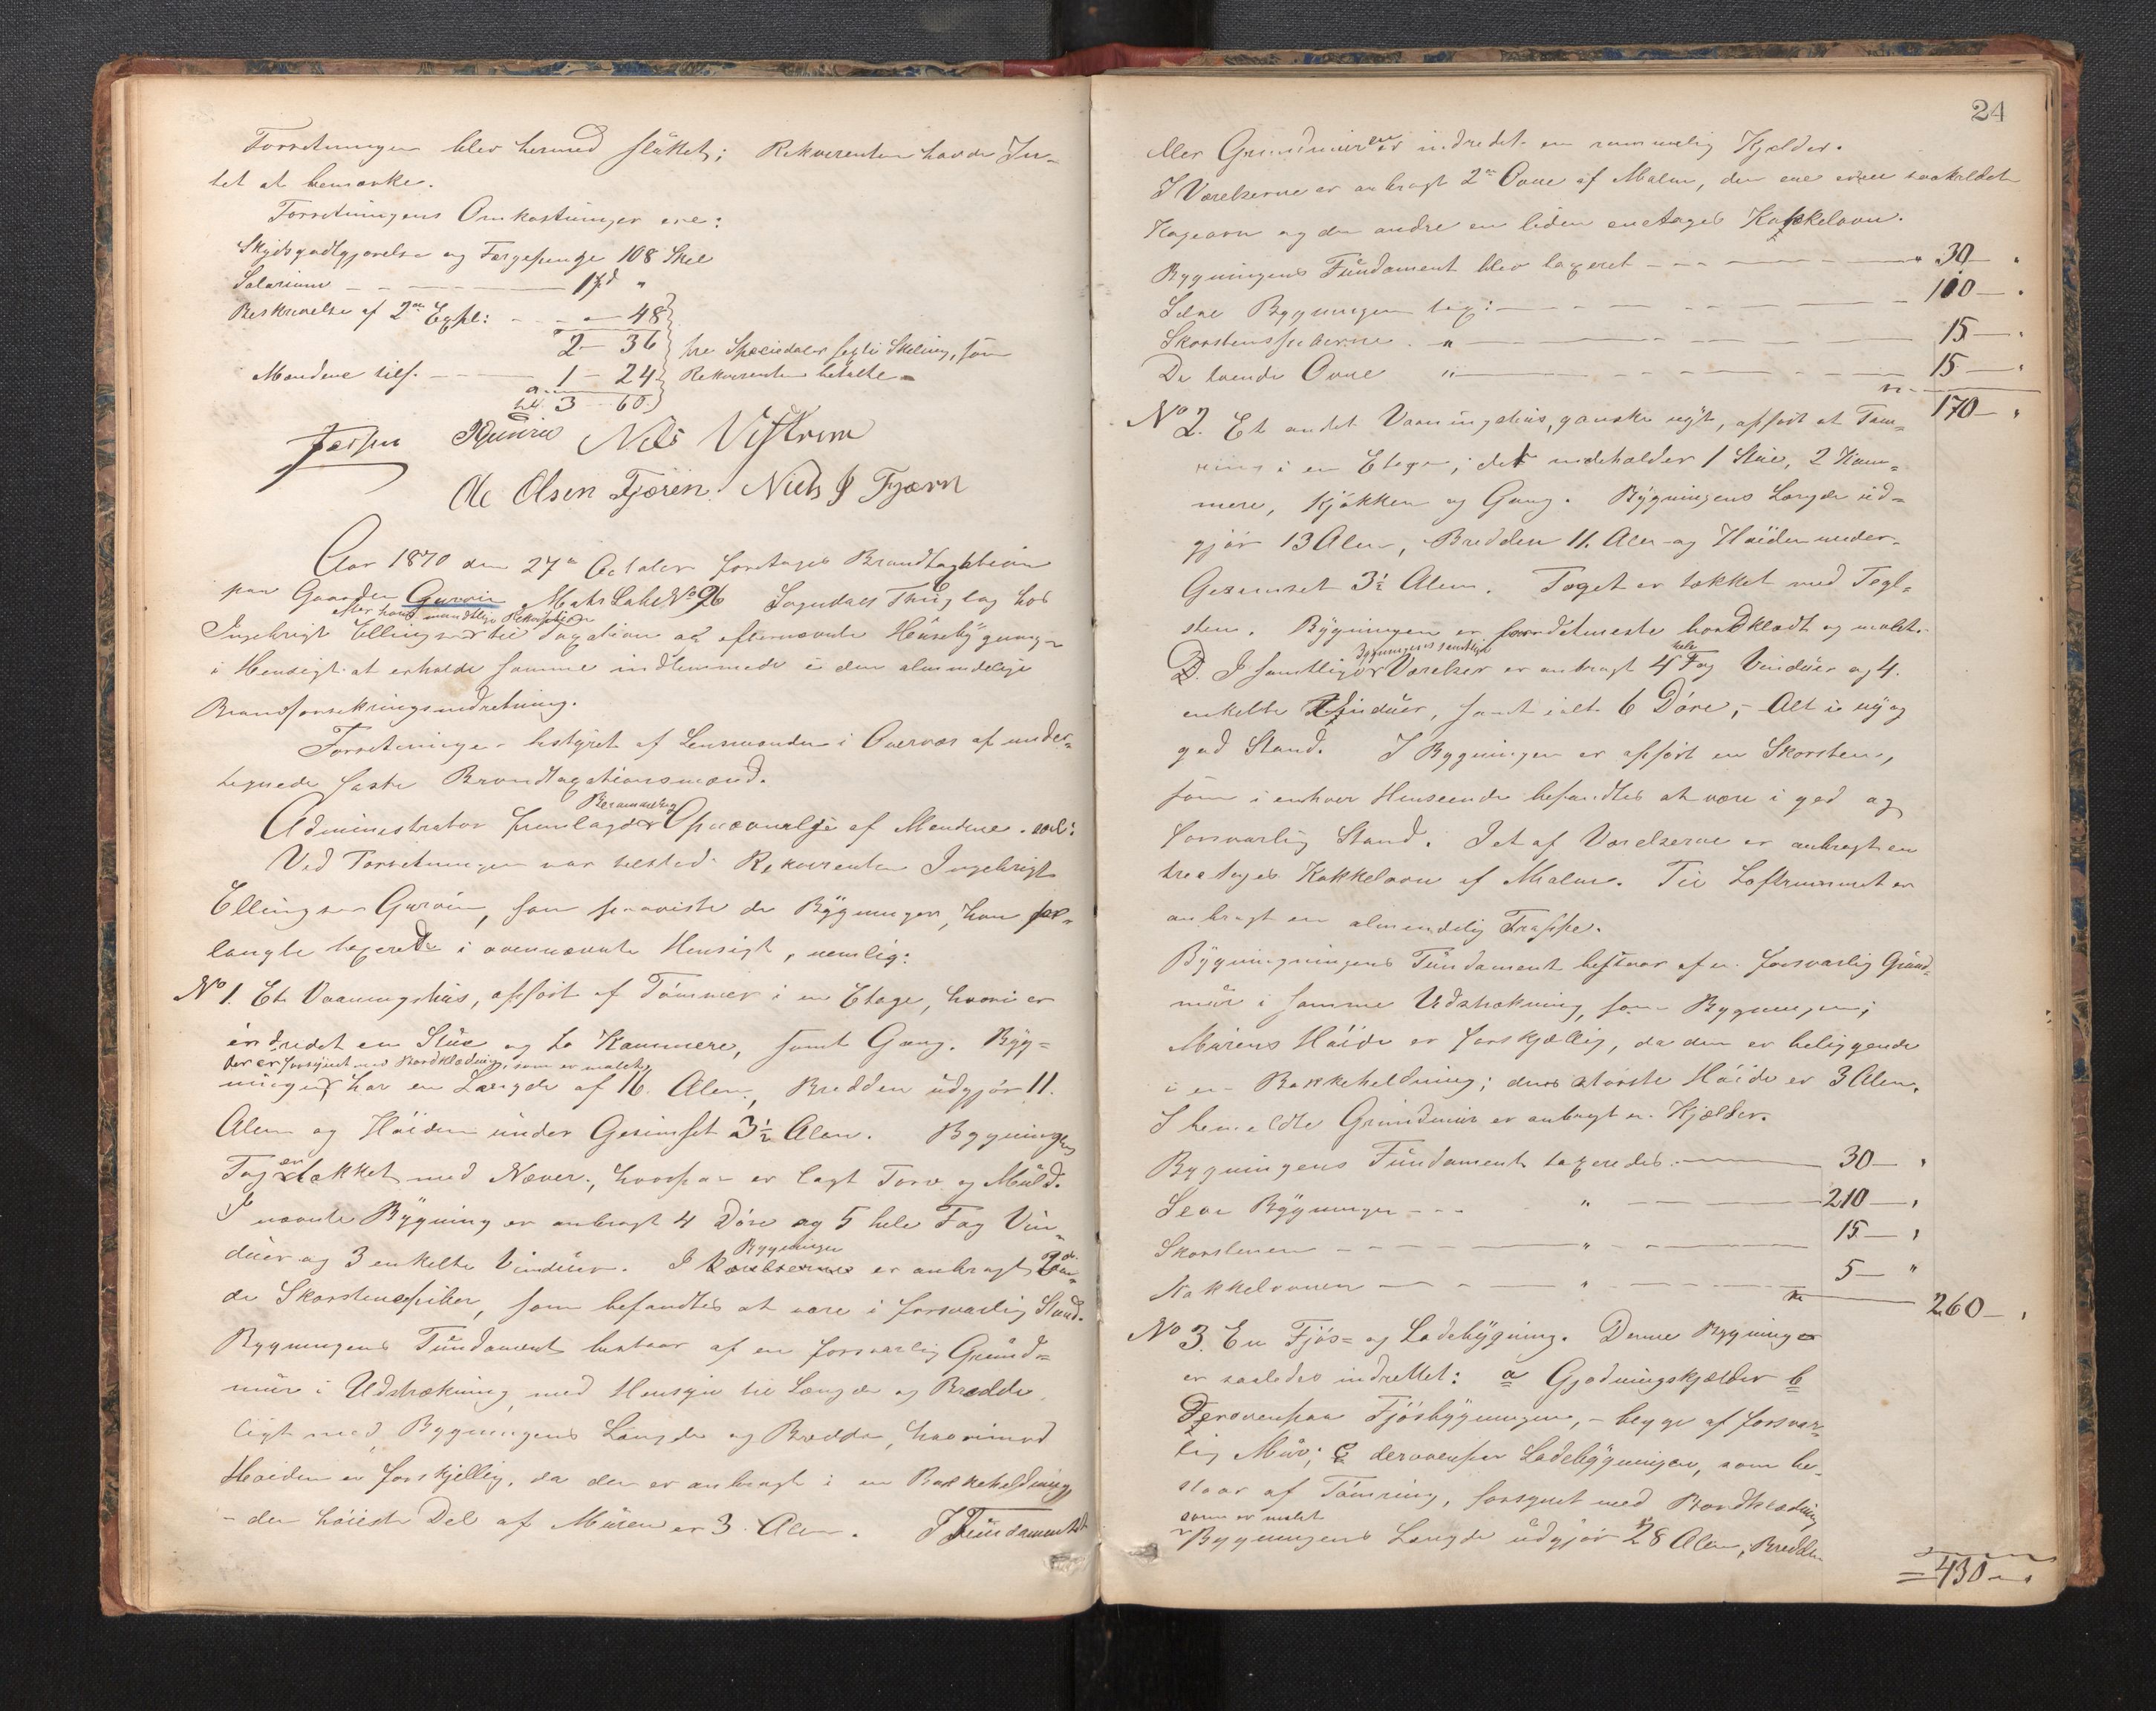 Forretningen blev hermed sluttet; Rekvirenten havde In-
tet at bemærke.
Forretningens Omkostninger ere:
Skydsgodtgjørelse og Færgepenge 108 Skel
Salarium - - 1 spd "
Beskrivelse af 2de Expl: - - - 48
2 - 36 tre Speciedaler sexti Skeling, som
Mændene tilf. - 1 - 24 Rekvirenten betalte -
3 - 60
Nils Vestrem
Ole Olsen Fjøren. Niels J Fjærn
Aar 1870 den 27de October foretoges Brandtaxation
paa Gaarden Gurvin Matr Løbe No 96 Sogndals Thinglag hos
efter hans mundtlige Rekvisition
Ingebrigt Ellingsen til Taxation af efternævnte Husebygninger
i Hensigt at erholde samme indlemmede i den almindelige
Brandforsikringsindretning.
Forretningen bestyret af Lensmanden i Overvær af under-
tegnede faste Brandtaxationsmænd.
Berammelse og
Administrator fremlagde Opnævnelse af Mændene
Ved Forretningen var tilstede Rekvirenten Ingebrigt
Ellingsen Gurvin, som paaviste de Bygninger, han for-
langte taxerede i ovennævnte Hensigt, nemlig:
No 1. Et Vaaningshus, opført af Tømmer i en Etage, hvori er
indredet en Stue og to Kammere, samt Gang. Byg-
der er forsynet med Bordklædning, som er malet
ningen har en Længde af 16 Alen, Bredden udgjør 11.
Alen og Høiden under Gesimset 3½ Alen. Bygningens
Tag er tækket med Næver, hvorpaa er lagt Torv og Muld.
I nævnte Bygning er anbragt 4 Døre og 5 hele Fag Vin-
duer og 3 enkelte Vinduer. I Bygningen er anbragt tven-
de Skorstenspiber, som befandtes at være i forsvarlig Stand.
Bygningens Fundament bestaar af en forsvarlig Grund-
mur i Udstrækning med Hensyn til Længde og Bredde
ligt med Bygningens Længde og Bredde, hvorimod
Høiden er forskjellig, da den er anbragt i en Bakkeheldning
- den høieste Del af Muren er 3 Alen. I Fundamentet
24
eller Grundmuren er indredet en rummelig Kjelder.
I Værelserne er anbragt 2de Ovne af Malm, den ene er en saakaldet
Kogeovn og den andre en liden enetages Kakkelovn.
Bygningens Fundament blev taxeret - - - 30 - "
Selve Bygningen tax: - - - 100 - "
Skorstenspiberne " - - - 15 - "
De tvende Ovne " - - - 15 - "
170 - "
No 2. Et andet Vaaningshus, ganske nyt, opført af Tøm-
ring i en Etage; det indeholder 1 Stue, 2 Kam-
mere, Kjøkken og Gang. Bygningens Længde ud-
gjør 13 Alen, Bredden 11. Alen og Høiden under
Gesimset 3½ Alen. Taget er tækket med Tegl-
sten. Bygningen er bordklædt og malet.
Bygningens samtlige
I Værelser er anbragt 4 hele Fag Vinduer og 4.
enkelte Vinduer, samt ialt 6 Døre, - Alt i ny og
god Stand. I Bygningen er opført en Skorsten,
som i enhver Henseende befandtes at være i god og
forsvarlig Stand. I et af Værelserne er anbragt en
treetages Kakkelovn af Malm. Til Loftrummet er
anbragt en almindelig Trappe.
Bygningningens Fundament bestaar af en forsvarlig Grund-
mur i samme Udstrækning, som Bygningen;
Murens Høide er forskjællig, da den er beliggende
i en Bakkeheldning; dens største Høide er 3 Alen.
I bemeldte Grundmur er anbragt en Kjælder.
Bygningens Fundament taxeredes - 30 - "
Selve Bygningen - - - " - 210 - "
Skorstenen - - - " - 15 - "
Kakkelovnen - - - " - 5 - "
260 - "
No 3. En Fjøs- og Ladebygning. Denne Bygning
er saaledes indrettet: a Gjødningskjælder b
Derovenpaa Fjøsbygningen, - begge af forsvar-
lig Mur; c derovenpaa Ladebygningen, som be-
staar af Tømring, forsynet med Bordklædning
som er malet
Bygningens Længde udgjør 28 Alen, Bredden
= 430 - "